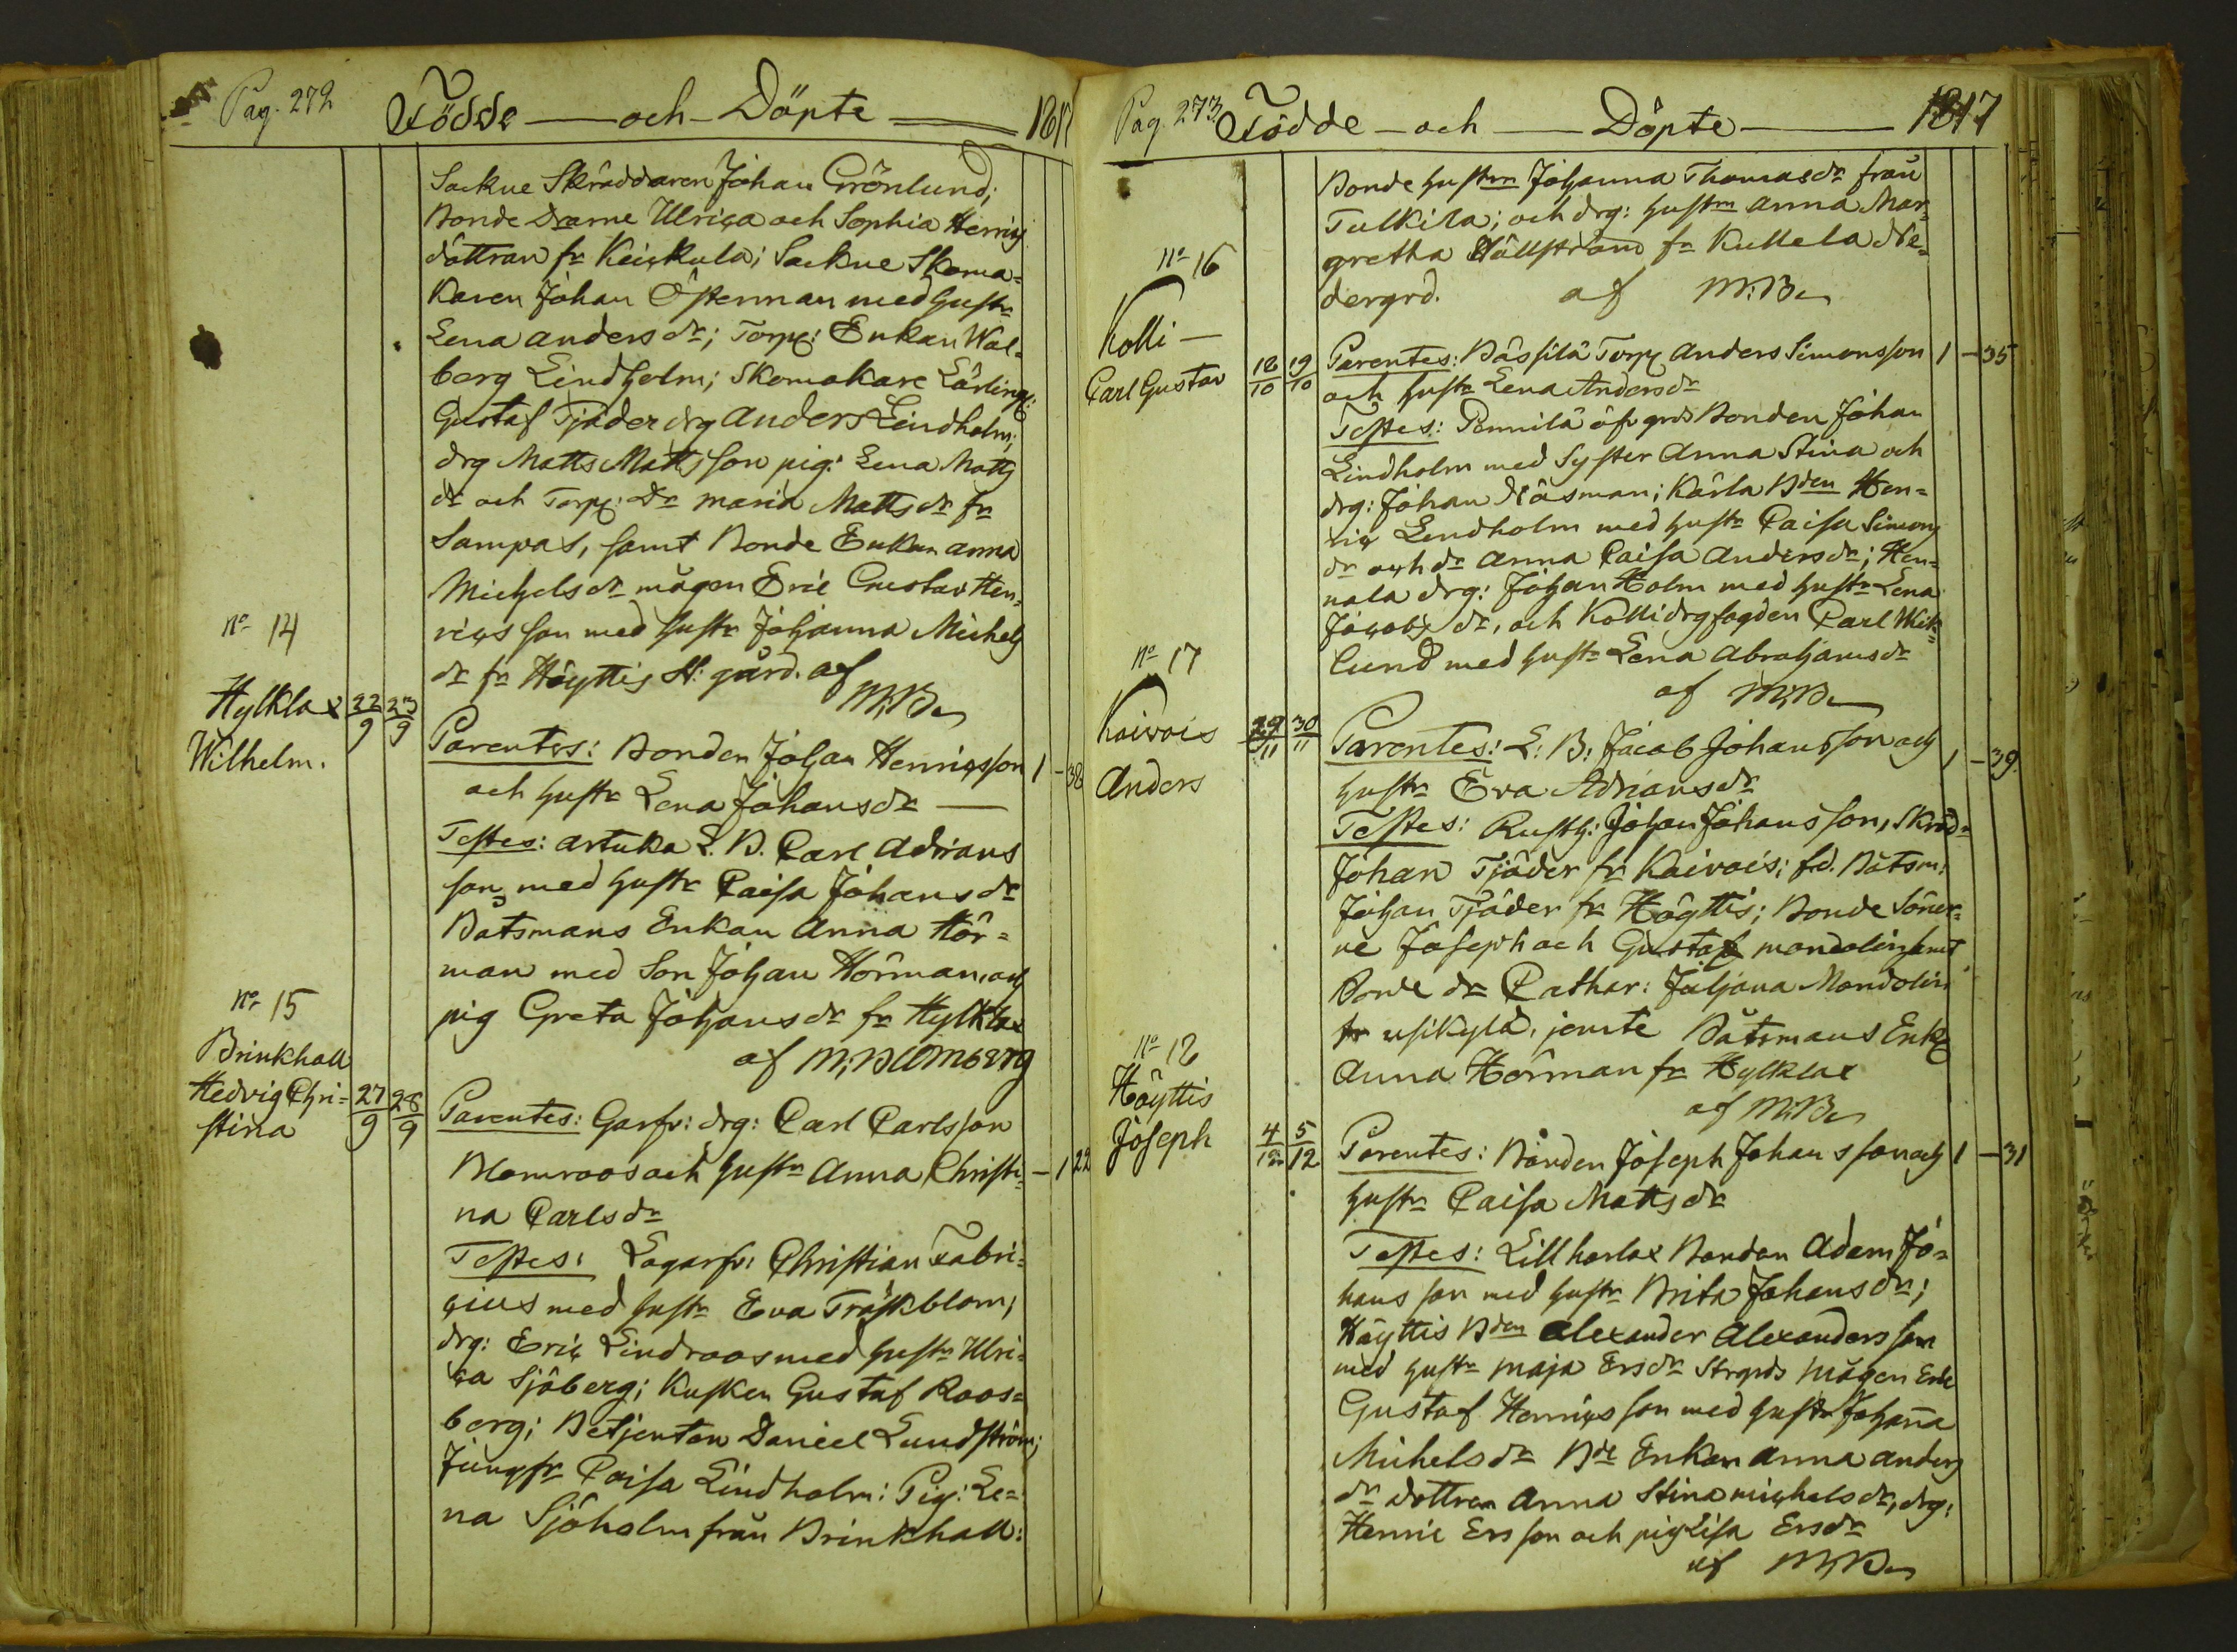 Pag. 272
Födde — och — Döpte — 1817
Sackue Skräddaren Johan Grönlund;
Bonde Drarne Ulrica och Sophia Henrics
döttran fr Keickula; Sackue Skoma=
karen Johan Österman med hustr
Lena Anders dr; Torp: Enkan Wal=
borg Lindholm; Skomakare Lärling:
Gustaf Tjäder drg Anders Lindholm;
drg Matts Matts son pig: Lena Matts
dr och Torp: Dr Maria Matts dr fr
Sampas, samt Bonde Enkan Anna
Michels dr mågen Eric Gustav Hen=
rics son med hustr Johanna Michels
dr fr Höyttis St: gård. af
M:B
No 14
Hylklax 22/9 23/9
Wilhelm.
Parentes: Bonden Johan Henricsson 1 - 38
och hustr Lena Johans dr —
Testes: Artuka L. B. Carl Adrians
son med hustr Caisa Johans dr
Båtsmans Enkan Anna Hör=
man med Son Johan Hörman, och
pig Greta Johans dr fr Hylklax
af M: Blomberg
No 15
Brinkhall
Hedvig Chri=
stina 27/9 28/9
Parentes: Garfv: drg: Carl Carlsson
Blomroos och hustr Anna Christi= - 1 22
na Carls dr
Testes: Logarfv: Christian Fabri=
cius med hustr Eva Träskblom;
drg: Eric Lindroos med hustr Ulri=
ca Sjöberg; Kusken Gustaf Roos=
berg; Betjenten Daniel Lundström;
Jungfr Caisa Lindholm: Pig: Le=
na Sjöholm från Brinkhall:
Pag. 273 Födde — och — Döpte — 1817
Bonde hustrun Johanna Thomas dr från
Tulkila; och drg: hustrn Anna Mar=
gretha Hällström fr Kullela Ne=
dergrd. af M:B
No 16
Kolli —
Carl Gustav 18/10 19/10
Parentes: Bässilä Torp Anders Simonsson 1 - 35
och hustr Lena Anders dr
Testes: Pennilä öfr grds Bonden Johan
Lindholm med Syster Anna Stina och
drg: Johan Näsman; Kärla Bden Hen=
ric Lindholm med hustr Caisa Simons
dr och dr Anna Caisa Anders dr; Hen=
nala drg: Johan Holm med hustr Lena
Jacobs dr, och Kolli drg fogden Carl Wik=
lund med hustr Lena Abrahams dr
af M:B
No 17
Kaivois 29/11 30/11
Anders
Parentes: L: B: Jacob Johansson och 1 - 39.
hustr Eva Adrians dr
Testes: Rusth: Johan Johans son, Skräd=
Johan Tjäder fr Kaivois; fd. Båtsm:
Johan Tjäder fr Höyttis; Bonde Söner=
ne Joseph och Gustaf Mandolin samt
Bonde dr Cathar: Juliana Mandolin
fr usikylä, jemte Båtsmans Enk
Anna Hörman fr Hylklax
af M:B
No 18
Höyttis
Joseph 4/12 5/12
Parentes: Bonden Joseph Johans son och 1 - 31
hustr Caisa Matts dr
Testes: Lill harlax Bonden Adam Jo=
hans son med hustr Brita Johans dr;
Höyttis Bden Alexander Alexanders son
med hustr Maja Ers dr Strgrds Mågen Eric
Gustaf Henrics son med hustr Johanna
Michels dr Bde Enkan Anna Anders
dr dottren Anna Stina Michels dr, drg:
Henric Ers son och pig Lisa Ers dr
af M:B